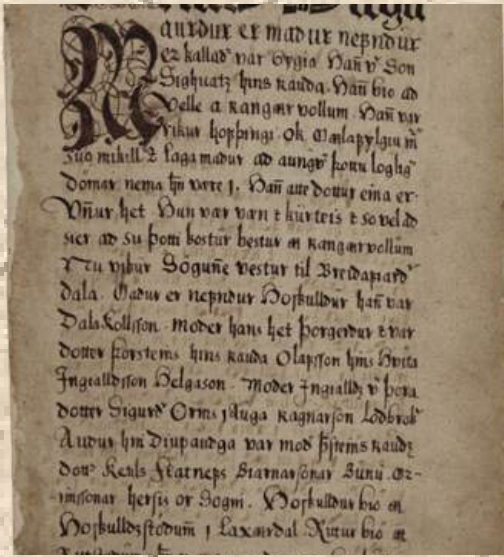 Maurdur er madur nefndur
er kallad var Gygia Han v Son
Sighuatz hins Rauda. Han bio ad
Velle a Rangær vollum. Han var
rikur hofþingi ok Malafylgiu m
suo mikill & lagamadur ad aungv þottu loglig
domar nema hn være j. Han atte dottur eina er
Vnnur het Hun var væn & kurteis & so vel ad
sier ad su þotti kostur bestur a Rangærvollum
Nu vikur Søgune vestur til Breidafiard
dala. Madur er nefndur Hoskulldur han var
Dala Kollsson. Moder hans het Þorgerdur & var
dotter Þorsteins hins Rauda Olafsson hins Hvita
Jngialldsson Helgason. Moder Jngialldz v Þora
dotter Sigurd Orms j Auga Ragnarson Lodbrok
Audur hin Diupaudga var mod Þsteins Raudz
dott Ketils Flatnefs Biarnarsonar Bunu. Gr-
imssonar hersis or Sogni. Hoskulldur bio a
Hoskulldzstødum j Laxærdal. Rutur bio a